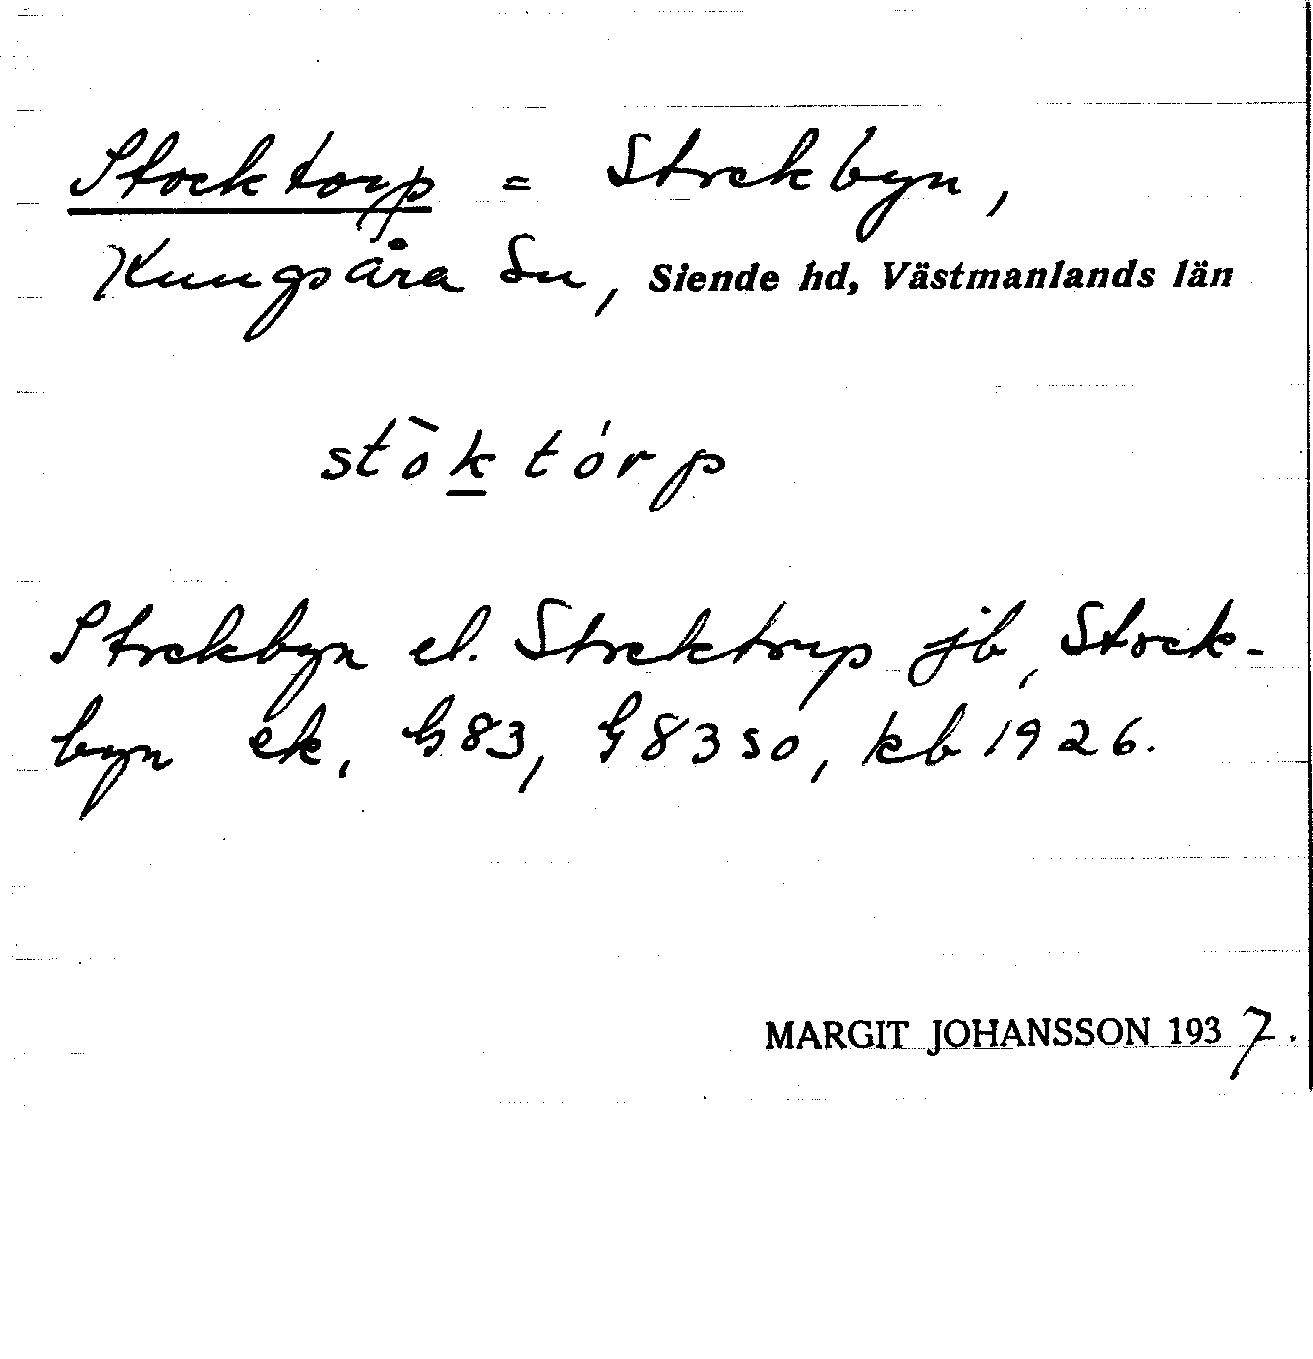 Stocktorp = Stockbyn,
Kungsåra Sn, Siende hd, Västmanlands län
stòk tórp
Stockbyn el. Stocktorp jb, Stock-
byn ek, G83, G83 so, kb 1926.
MARGIT JOHANSSON 1937.